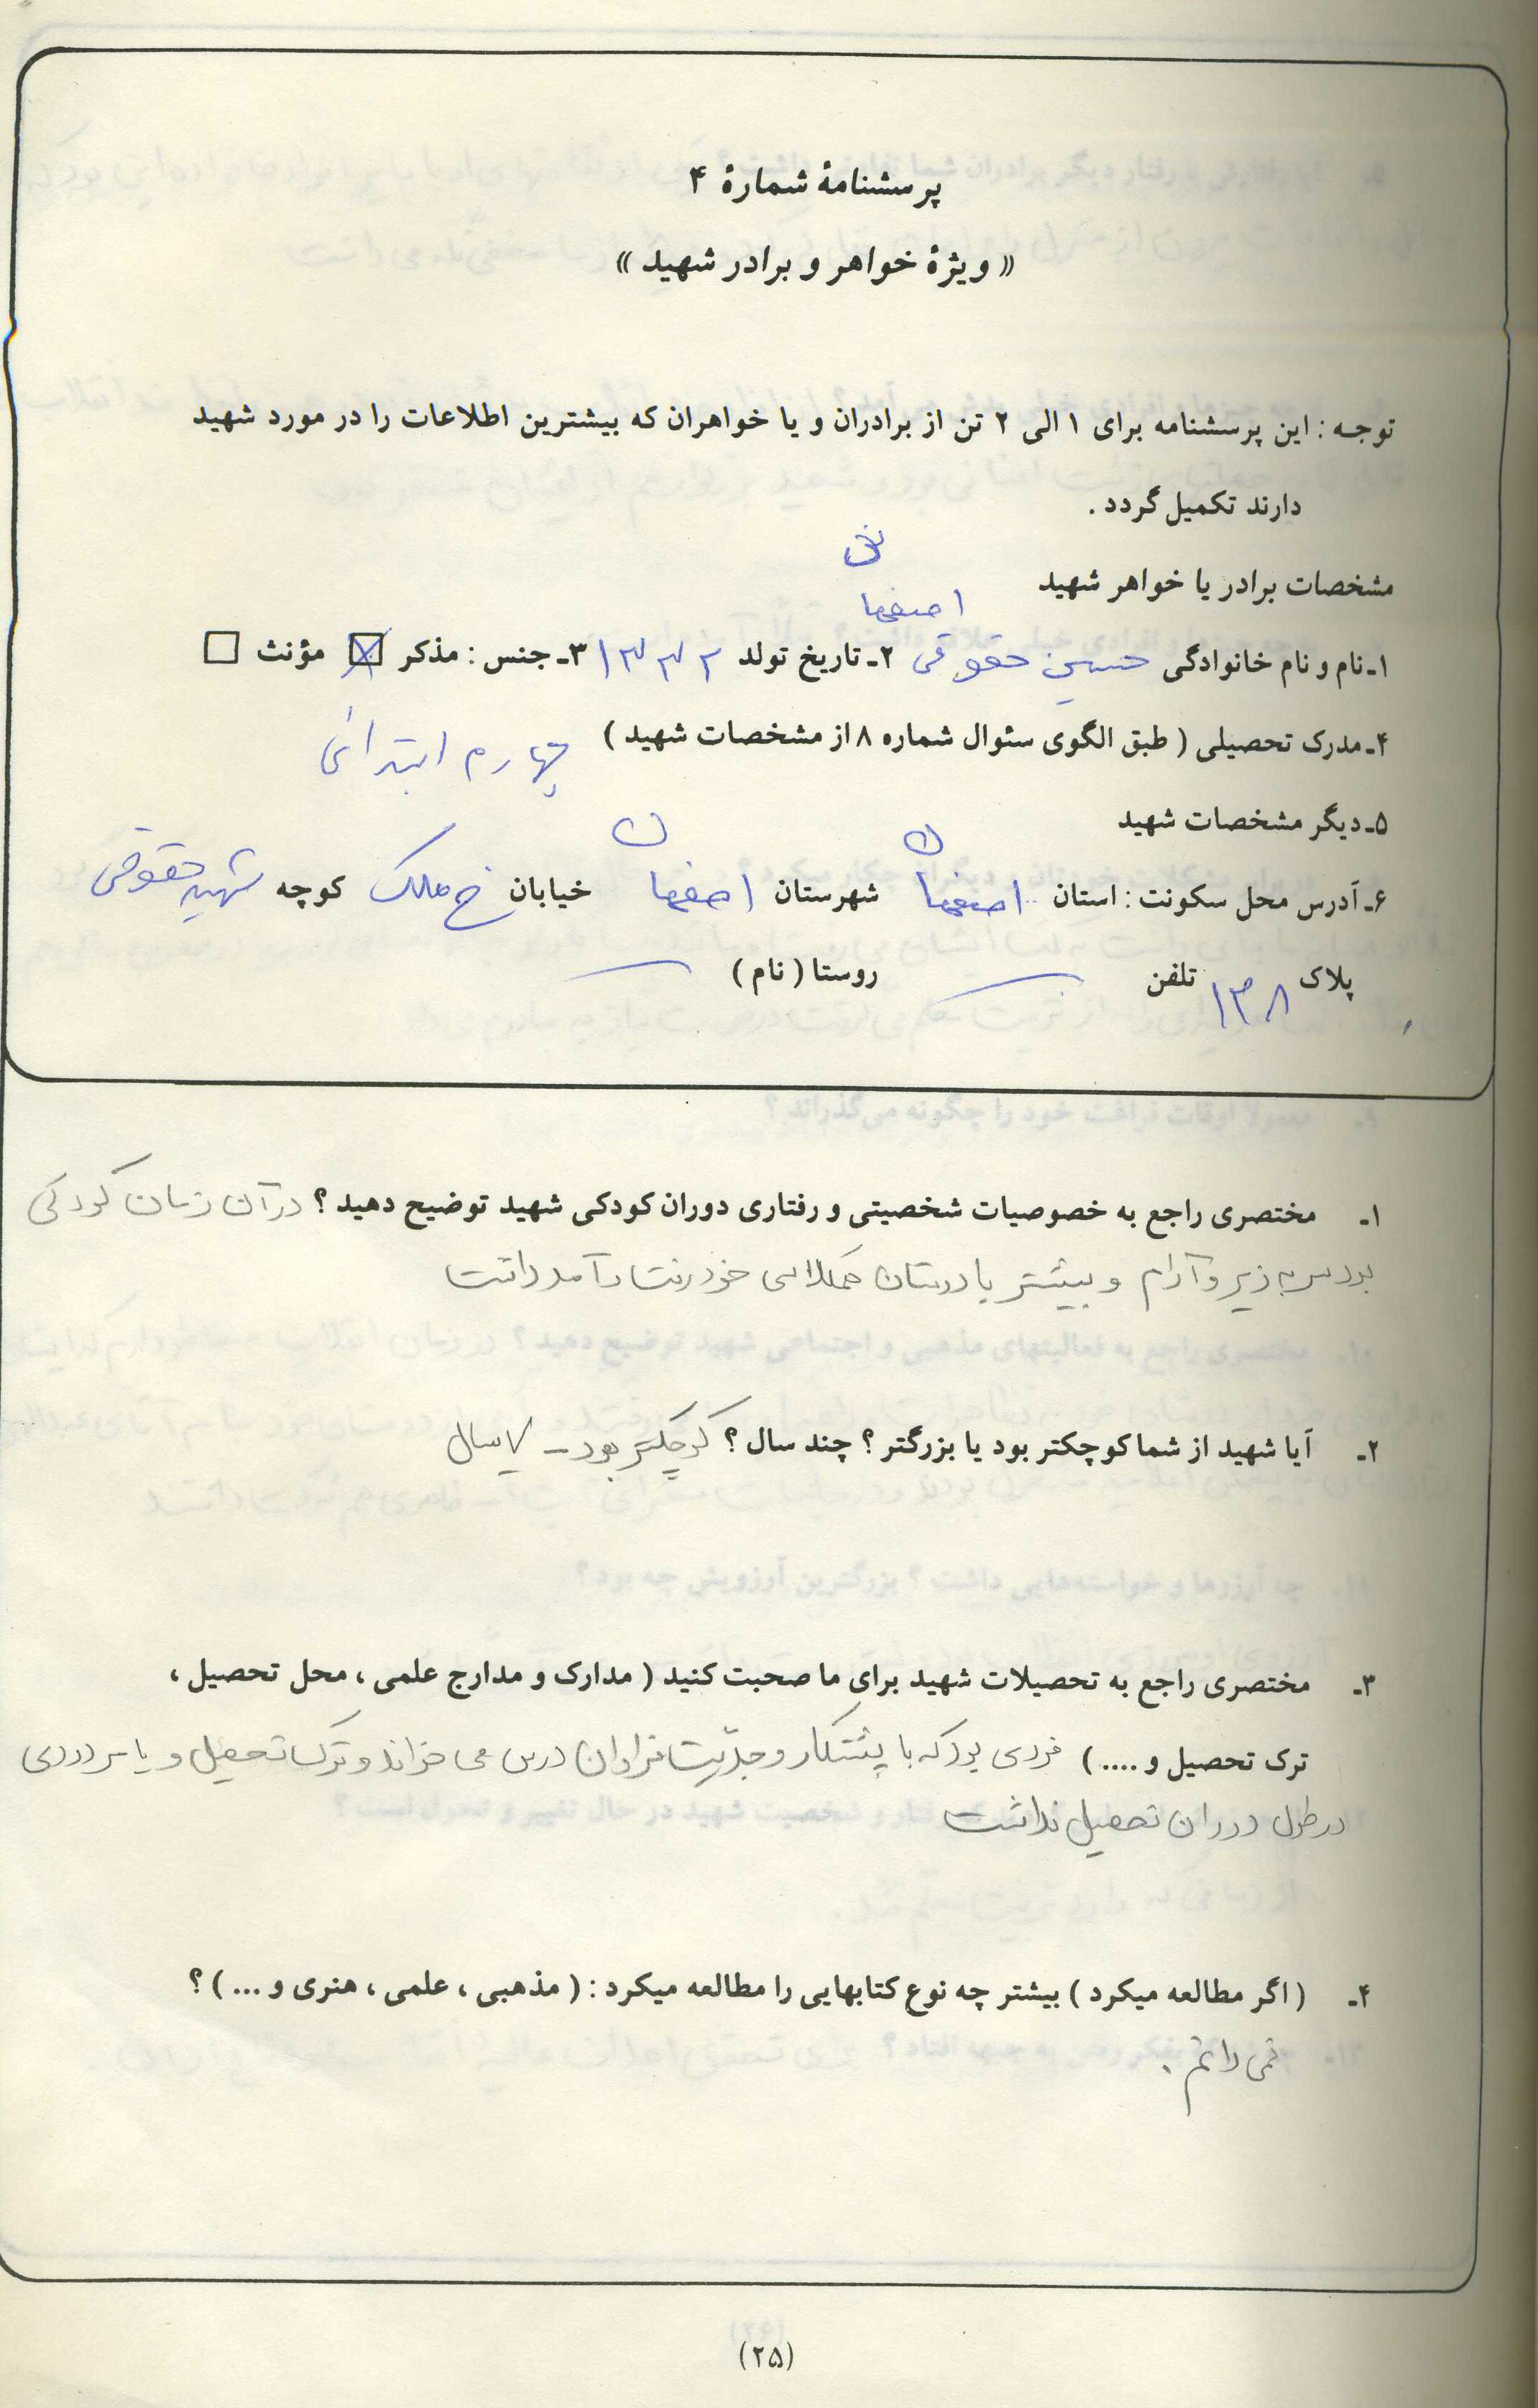 پرسشنامهٔ شمارهٔ ۴
« ویژهٔ خواهر و برادر شهید »
توجه : این پرسشنامه برای ۱ الی ۲ تن از برادران و یا خواهران که بیشترین اطلاعات را در مورد شهید
دارند تکمیل گردد .
مشخصات برادر یا خواهر شهید
۱ـ نام و نام خانوادگی حسین حقوقی اصفهانی ۲ـ تاریخ تولد ۱۳۳۲ ۳ـ جنس : مذکر ☒ مؤنث □
۴ـ مدرک تحصیلی ( طبق الگوی سئوال شماره ۸ از مشخصات شهید ) چهارم ابتدائی
۵ـ دیگر مشخصات شهید
۶ـ آدرس محل سکونت : استان اصفهان شهرستان اصفهان خیابان خ ملک کوچه شهید حقوقی
پلاک ۱۳۸ تلفن ـ روستا ( نام ) ـ
۱ـ مختصری راجع به خصوصیات شخصیتی و رفتاری دوران کودکی شهید توضیح دهید ؟ در آن زمان کودکی
بود سربه زیر و آرام و بیشتر با دوستان همکلاسی خود رفت و آمد داشت
۲ـ آیا شهید از شما کوچکتر بود یا بزرگتر ؟ چند سال ؟ کوچکتر بود ـ ۷ سال
۳ـ مختصری راجع به تحصیلات شهید برای ما صحبت کنید ( مدارک و مدارج علمی ، محل تحصیل ،
ترک تحصیل و .... ) فردی بود که با پشتکار و جدّیت فراوان درس می خواند و ترک تحصیل و یا مردودی
در طول دوران تحصیل نداشت
۴ـ ( اگر مطالعه میکرد ) بیشتر چه نوع کتابهایی را مطالعه میکرد : ( مذهبی ، علمی ، هنری و ... ) ؟
نمی دانم .
(۲۵)